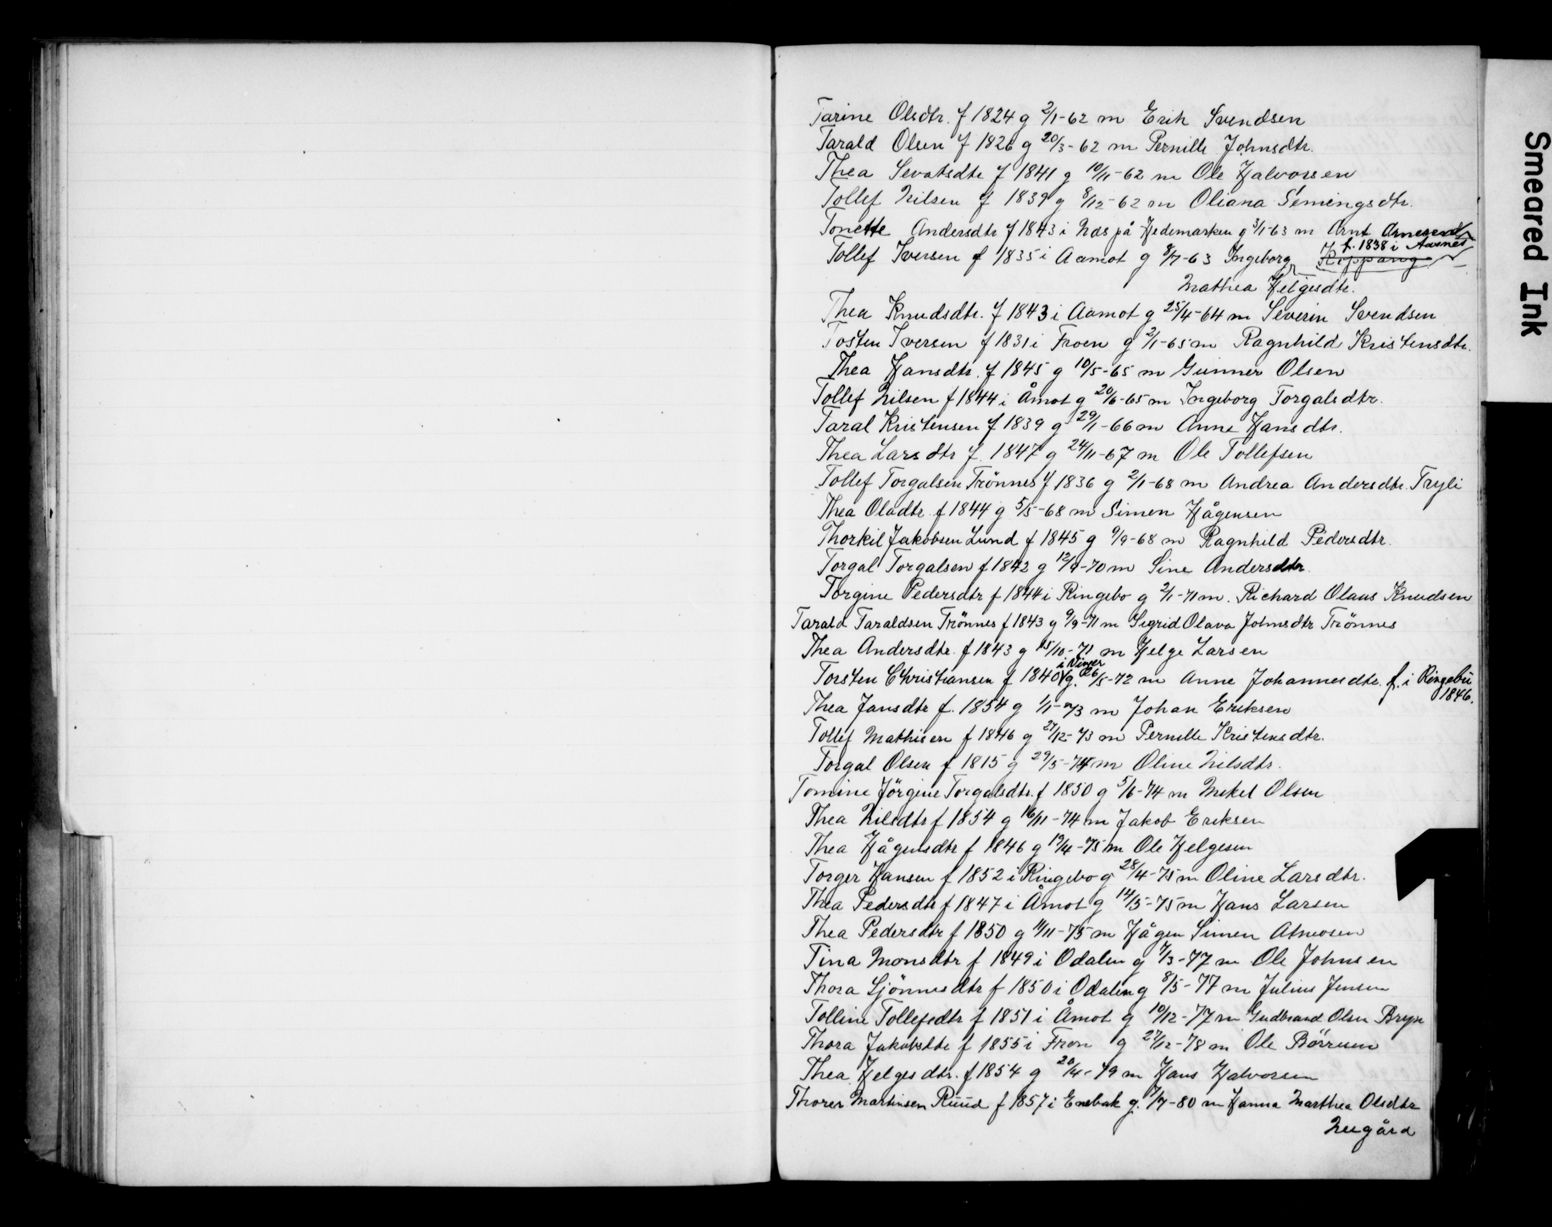 Tarine Olsdtr. f 1824 g 2/1-62 m Erik Svendsen
Tarald Olsen f 1826 g 20/3-62 m Pernille Johnsdtr.
Thea Sevatsdtr f 1841 g 10/11-62 m Ole Halvorsen
Tollef Nilsen f 1839 g 8/12-62 m Oliana Semingsdtr.
Tonette Andersdtr f 1843 i Næs på Hedemarken g 3/1-63 m Arnt Arnesen
f. 1838 i Aasnes
Tollef Iversen f 1835 i Aamot g 8/7-63 Ingeborg
Mathea Helgesdtr.
Thea Knudsdtr. f 1843 i Aamot g 25/4-64 m Severin Svendsen
Tosten Iversen f 1831 i Froen g 2/1-65 m Ragnhild Kristensdtr.
Thea Hansdtr. f 1845 g 10/5-65 m Gunner Olsen
Tollef Nilsen f 1844 i Åmot g 20/6-65 m Ingeborg Torgalsdtr.
Taral Kristensen f 1839 g 29/1-66 m Anne Hansdtr.
Thea Larsdtr f. 1847 g 24/11-67 m Ole Tollefsen
Tollef Torgalsen Trønnes f 1836 g 2/1-68 m Andrea Andersdtr. Tryli
Thea Olsdtr. f 1844 g 5/5-68 m Simen Hågensen
Thorkil Jakobsen Lund f 1845 g 9/9-68 m Ragnhild Pedersdtr.
Torgal Torgalsen f 1842 g 12/4-70 m Sine Andersdtr.
Torgine Pedersdtr f 1844 i Ringebo g 2/1-71 m. Richard Olaus Knudsen
Tarald Taraldsen Trønnes f 1843 g 9/9-71 m Sigrid Olava Johnsdtr Trønnes
Thea Andersdtr. f 1843 g 15/10-71 m Helge Larsen
i Vinger
Torsten Christiansen f 1840 g. 26/5-72 m Anne Johannesdtr. f. i Ringebu
1846.
Thea Jansdtr f. 1854 g 1/1-73 m Johan Eriksen
Tollef Mathisen f 1846 g 27/12-73 m Pernille Kristensdtr.
Torgal Olsen f 1815 g 29/5-74 m Oline Nilsdtr.
Tomine Jörgine Torgalsdtr. f 1850 g 5/6-74 m Mikel Olsen
Thea Nilsdtr f 1854 g 16/11-74 m Jakob Eriksen
Thea Hågensdtr f 1846 g 19/4-75 m Ole Helgesen
Torger Hansen f 1852 i Ringebo g 28/4-75 m Oline Larsdtr.
Thea Pedersdtr f 1847 i Åmot g 14/5-75 m Hans Larsen
Thea Pedersdtr f 1850 g 11/11-75 m Hågen Simen Atneosen
Tina Monsdtr f 1849 i Odalen g 4/3-77 m Ole Johnsen
Thora Gjønnesdtr f 1850 i Odalen g 8/5-77 m Julius Jensen
Tolline Tollefsdtr f 1851 i Åmot g 10/12-77 m Gudbrand Olsen Bryn
Thora Jakobsdtr f 1855 i Fron g 27/12-78 m Ole Børresen
Thea Helgesdtr. f 1854 g 20/4-79 m Hans Halvorsen
Thorer Martinsen Ruud f 1857 i Enebak g. 7/7-80 m Hanna Marthea Olsdtr
Neegård
Smeared Ink